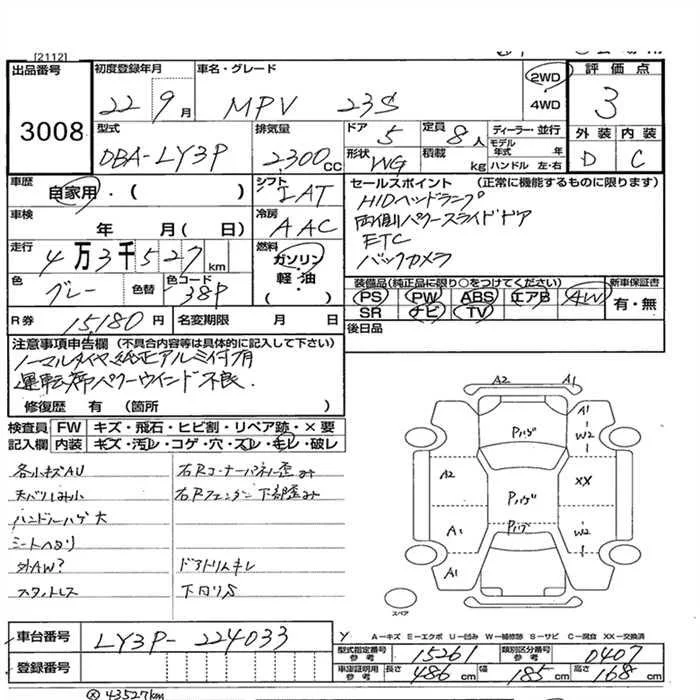 [2112]
出品番号
3008
初度登録年月
22 9月
車名・グレード
MPV 23S
2WD
4WD
評価点
3
型式
DBA-LY3P
排気量
2300CC
ドア
5
定員
8人
形状
WG
積載
kg
ディーラー・並行
モデル年式 年
ハンドル 左・右
外装 内装
D C
車歴
自家用・( )
シフト
IAT
セールスポイント (正常に機能するものに限ります)
HIDヘッドランプ
両側パワースライドドア
ETC
バックカメラ
車検
年 月( 日)
冷房
AAC
走行
4万3千527km
燃料
ガソリン
軽・油
( )
色
グレー
色替
色コード
38P
装備品(純正品に限り○をつけてください)
PS PW ABS エアB AW
SR ナビ TV
新車保証書
有・無
R券 15,180円
名変期限 月 日
後日品
注意事項申告欄 (不具合内容等は具体的に記入して下さい)
ノーマルタイヤ、純正アルミ付有
運転席パワーウインド不良.
修復歴 有 (箇所 )
検査員 FW キズ・飛石・ヒビ割・リペア跡・×要
記入欄 内装 キズ・汚レ・コゲ・穴・スレ・モレ・破レ
各小キズAU
天バリしみ小
ハンドルハゲ大
シートヘタリ
外AW?
スタットレス
右Rコーナーパネル歪み
右Rフェンダー下部歪み
ドアトリムキレ
下回りS
A2 A1
A1
Pハゲ
W2
A2
Pハゲ
XX
A1
Pハゲ
W2
A1
スペア
A―キズ E―エクボ U―凹み W―補修跡 S―サビ C―腐食 XX―交換済
車台番号
LY3P-224033
登録番号
型式指定番号
参考
15261
類別区分番号
参考
0407
車庫証明用
参考
長さ 486cm 幅 185cm 高さ 168cm
43527km